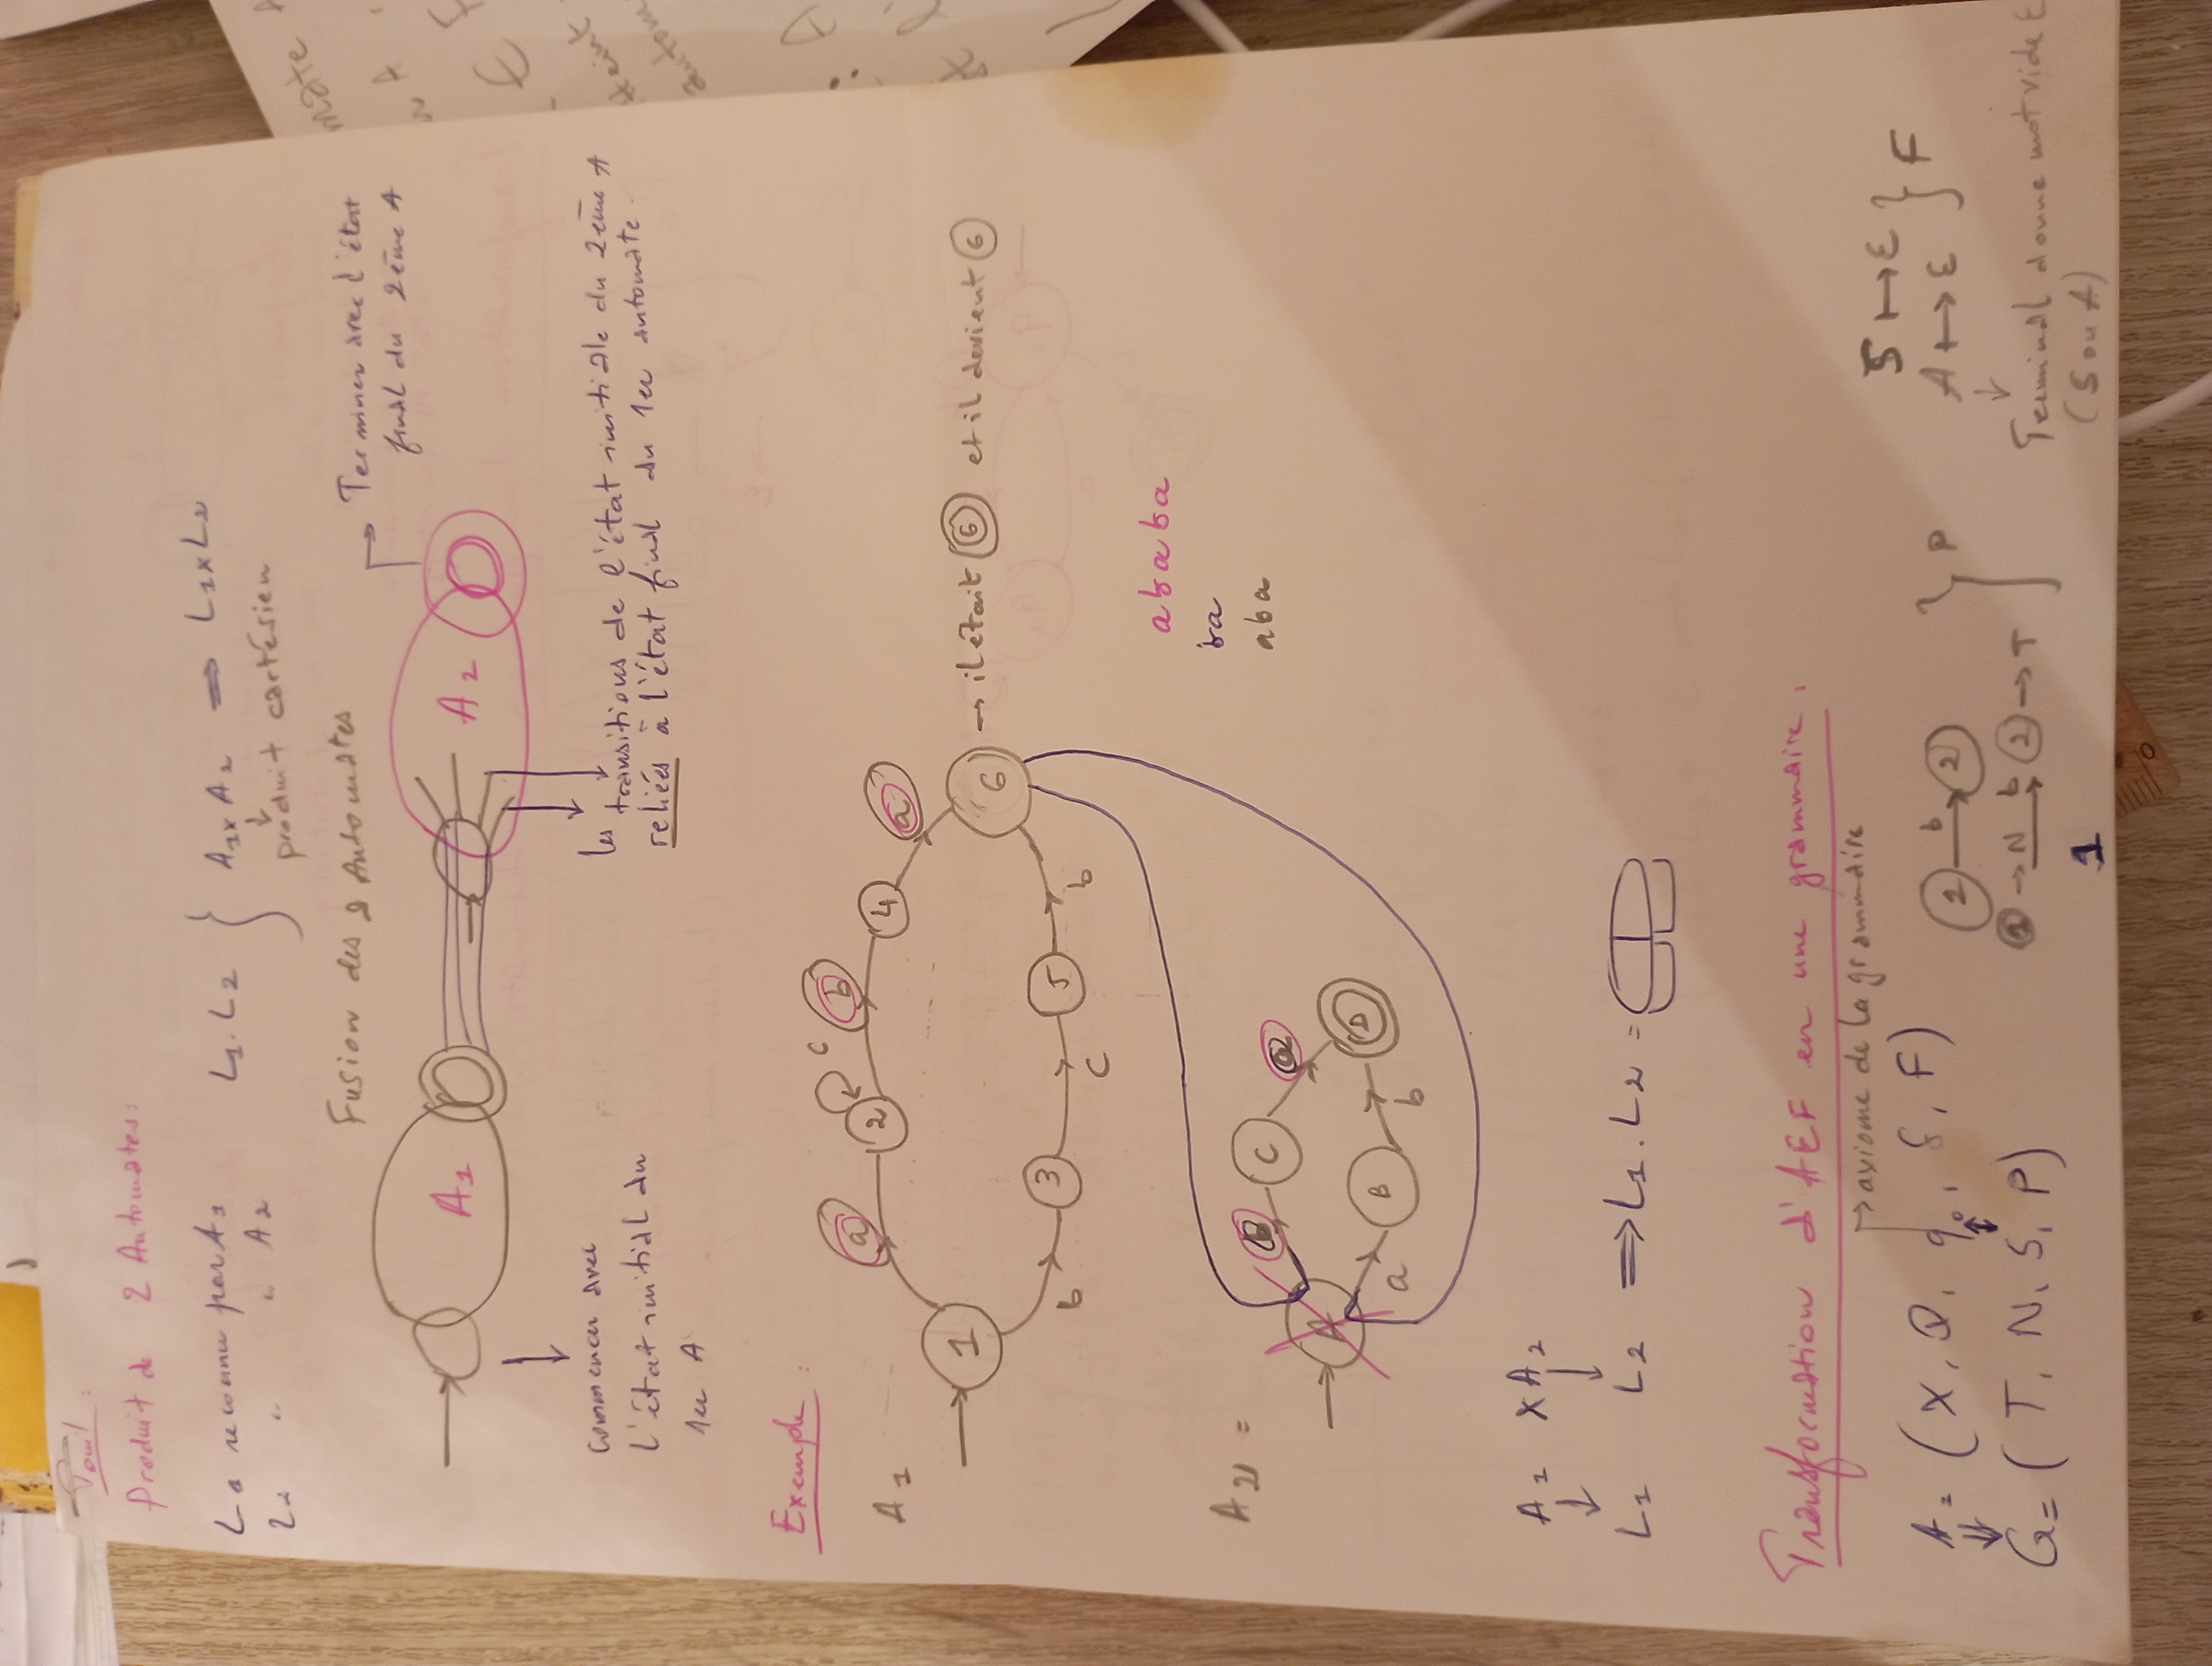 Produit de 2 Automates:
L1 reconnu par A1
L2 " " A2
L1.L2 } A1x A2 ⇒ L1xL2
↓
produit cartésien
Fusion des 2 Automates
→ Terminer avec l'état
final du 2ème A
A1
A2
Commencer avec
l'état initial du
1er A
les transitions de l'état initiale du 2ème A
reliées à l'état final du 1er automate.
Exemple :
A1
a 2 c b 4 a
1
6 → il était 6 et il devient 6
b 3 c 5 b
ababa
ba
aba
A2 =
b C a
A
D
a B b
A1 X A2
↓ ↓
L1 L2 ⇒ L1.L2 =
Transformation d'AEF en une grammaire.
→ axiome de la grammaire
A = (X, Q, q0, δ, F)
⇓
G = (T, N, S, P)
1 b 2
1 → N b 2 → T
} P
S ↦ ε
A ↦ ε
} F
↓
Terminal donne mot vide ε
(S ou A)
1
mate
A
E F
autom